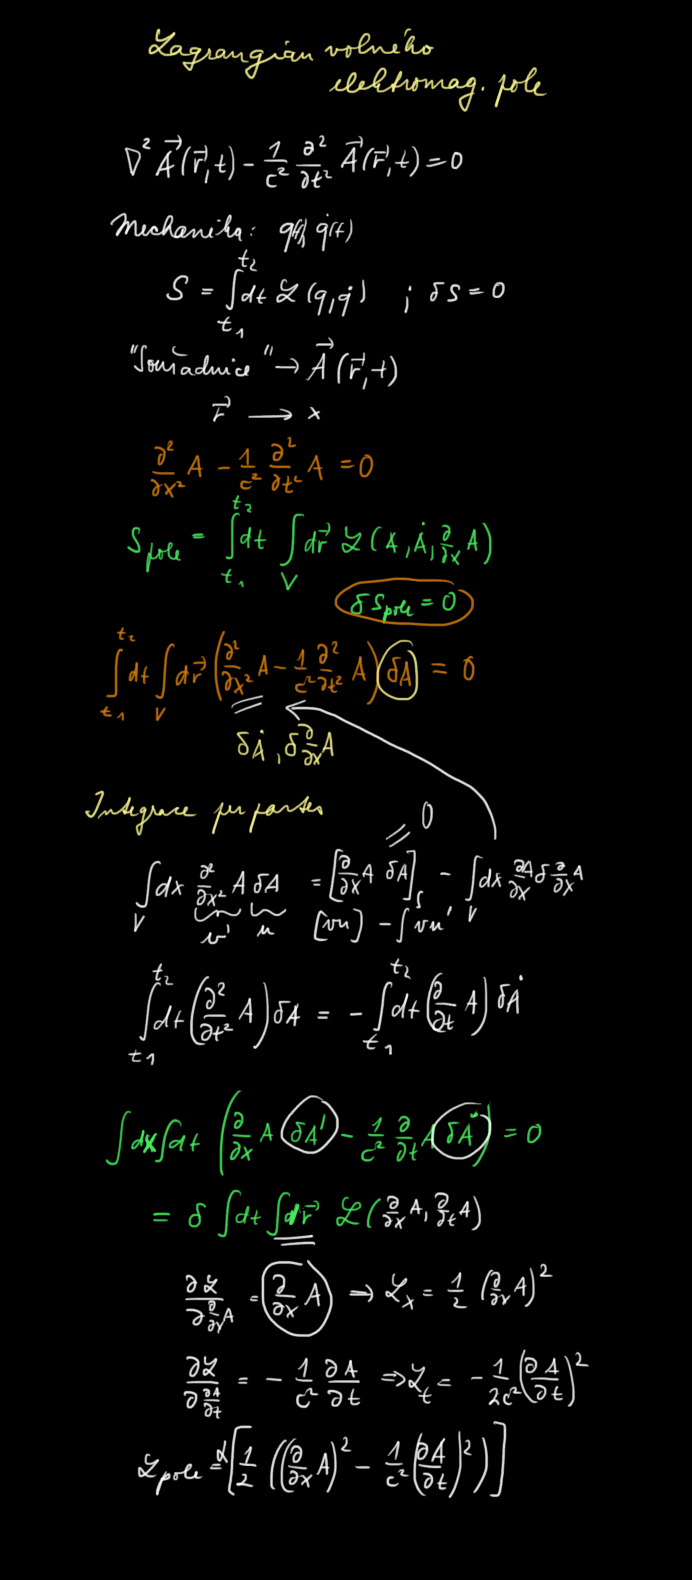 Lagrangián volného
elektromag. pole
∇² A⃗(r⃗,t) − 1/c² ∂²/∂t² A⃗(r⃗,t) = 0
Mechanika: q(t), q̇(t)
S = ∫_{t₁}^{t₂} dt ℒ(q,q̇) ; δS = 0
"Souřadnice" → A⃗(r⃗,t)
r⃗ → x
∂²/∂x² A − 1/c² ∂²/∂t² A = 0
S_pole = ∫_{t₁}^{t₂} dt ∫_V dr⃗ ℒ(A, Ȧ, ∂/∂x A)
δS_pole = 0
∫_{t₁}^{t₂} dt ∫_V dr⃗ (∂²/∂x² A − 1/c² ∂²/∂t² A) δA = 0
δȦ, δ ∂/∂x A
Integrace per partes
= 0
∫_V dx ∂²/∂x² A δA = [∂/∂x A δA]_S − ∫_V dx ∂A/∂x δ ∂/∂x A
v' u [vu] − ∫vu'
∫_{t₁}^{t₂} dt (∂²/∂t² A) δA = − ∫_{t₁}^{t₂} dt (∂/∂t A) δȦ
∫dx∫dt (∂/∂x A δA' − 1/c² ∂/∂t A δȦ) = 0
= δ ∫dt ∫dr⃗ ℒ(∂/∂x A, ∂/∂t A)
∂ℒ/∂ ∂/∂x A = ∂/∂x A ⇒ ℒ_x = 1/2 (∂/∂x A)²
∂ℒ/∂ ∂A/∂t = − 1/c² ∂A/∂t ⇒ ℒ_t = − 1/2c² (∂A/∂t)²
ℒ_pole = α[1/2 ((∂/∂x A)² − 1/c² (∂A/∂t)²)]